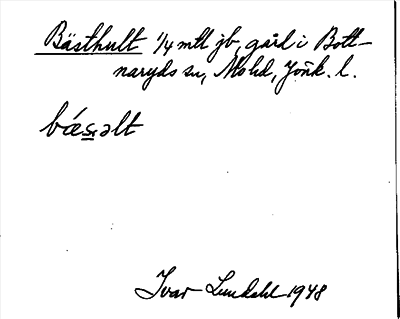 Bästhult 1/4 mtl jb, gård i Bott-
naryds sn, Mo hd, Jönk. l.
bǽs̲əlt
Ivar Lundahl 1948